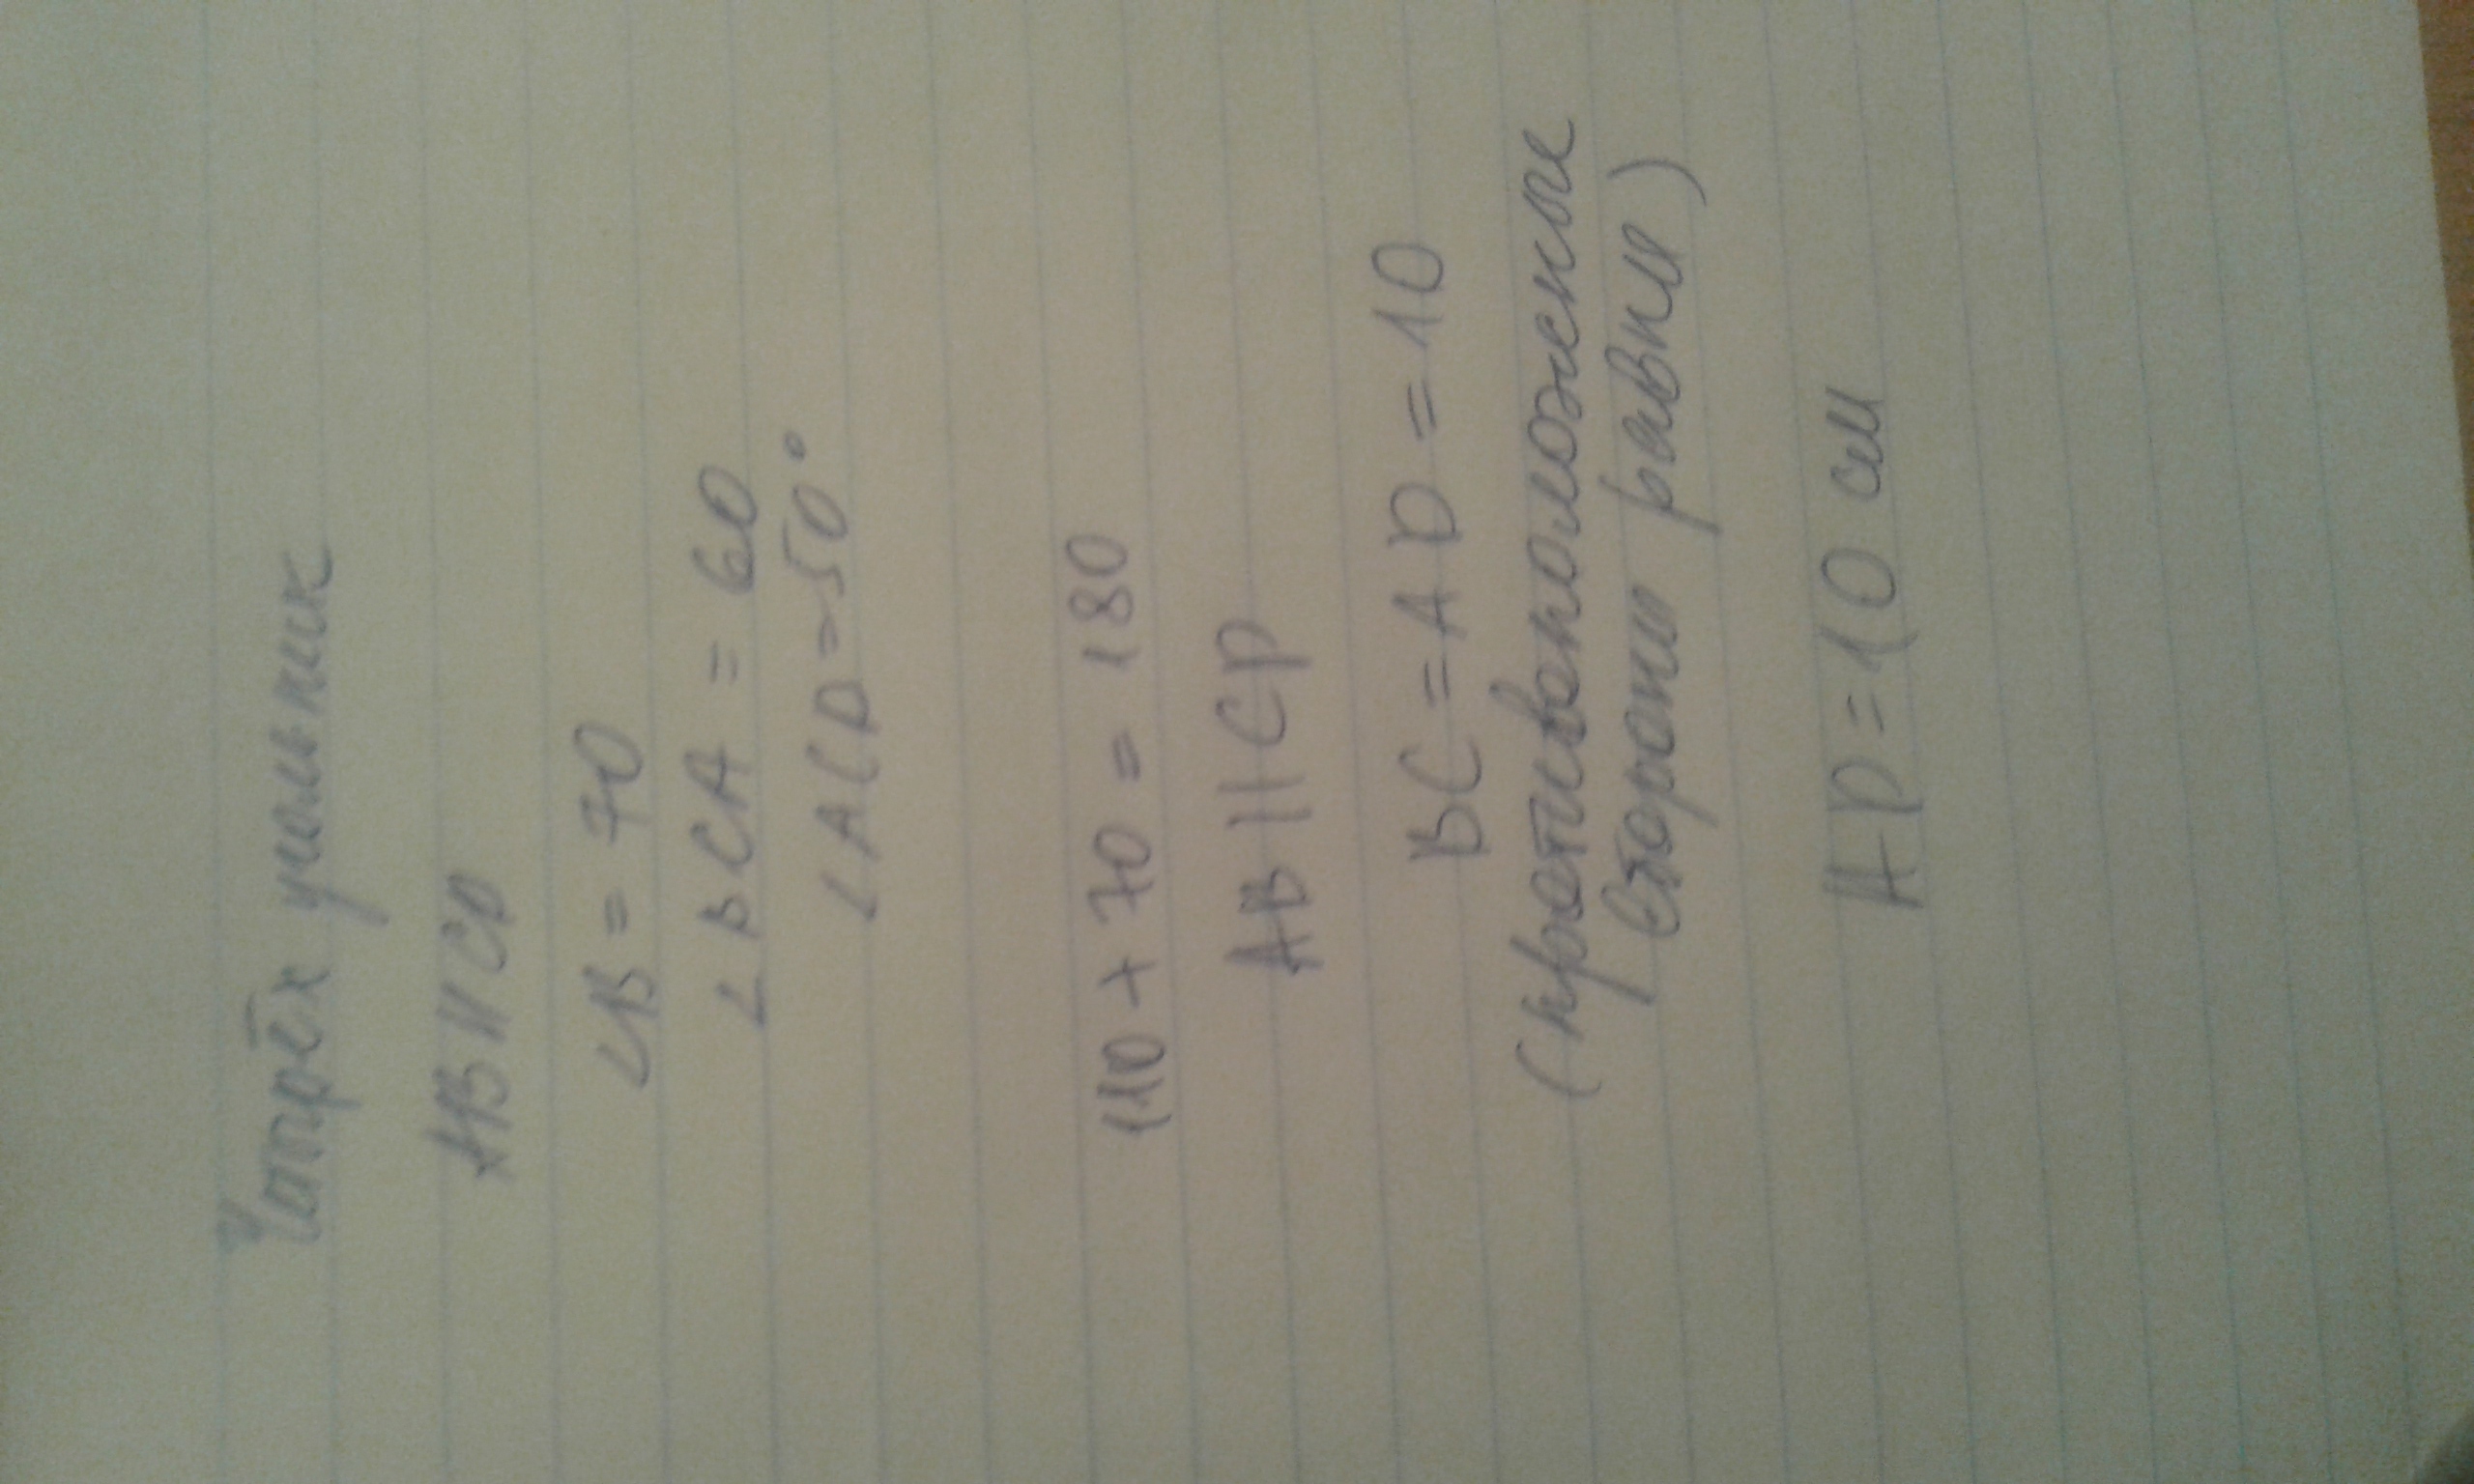 Чотрёх угольник
AB || CD
∠B = 70
∠BCA = 60
∠ACD = 50°
110 + 70 = 180
AB || CD
BC = AD = 10
(противоположные
стороны равны)
AD = 10 см